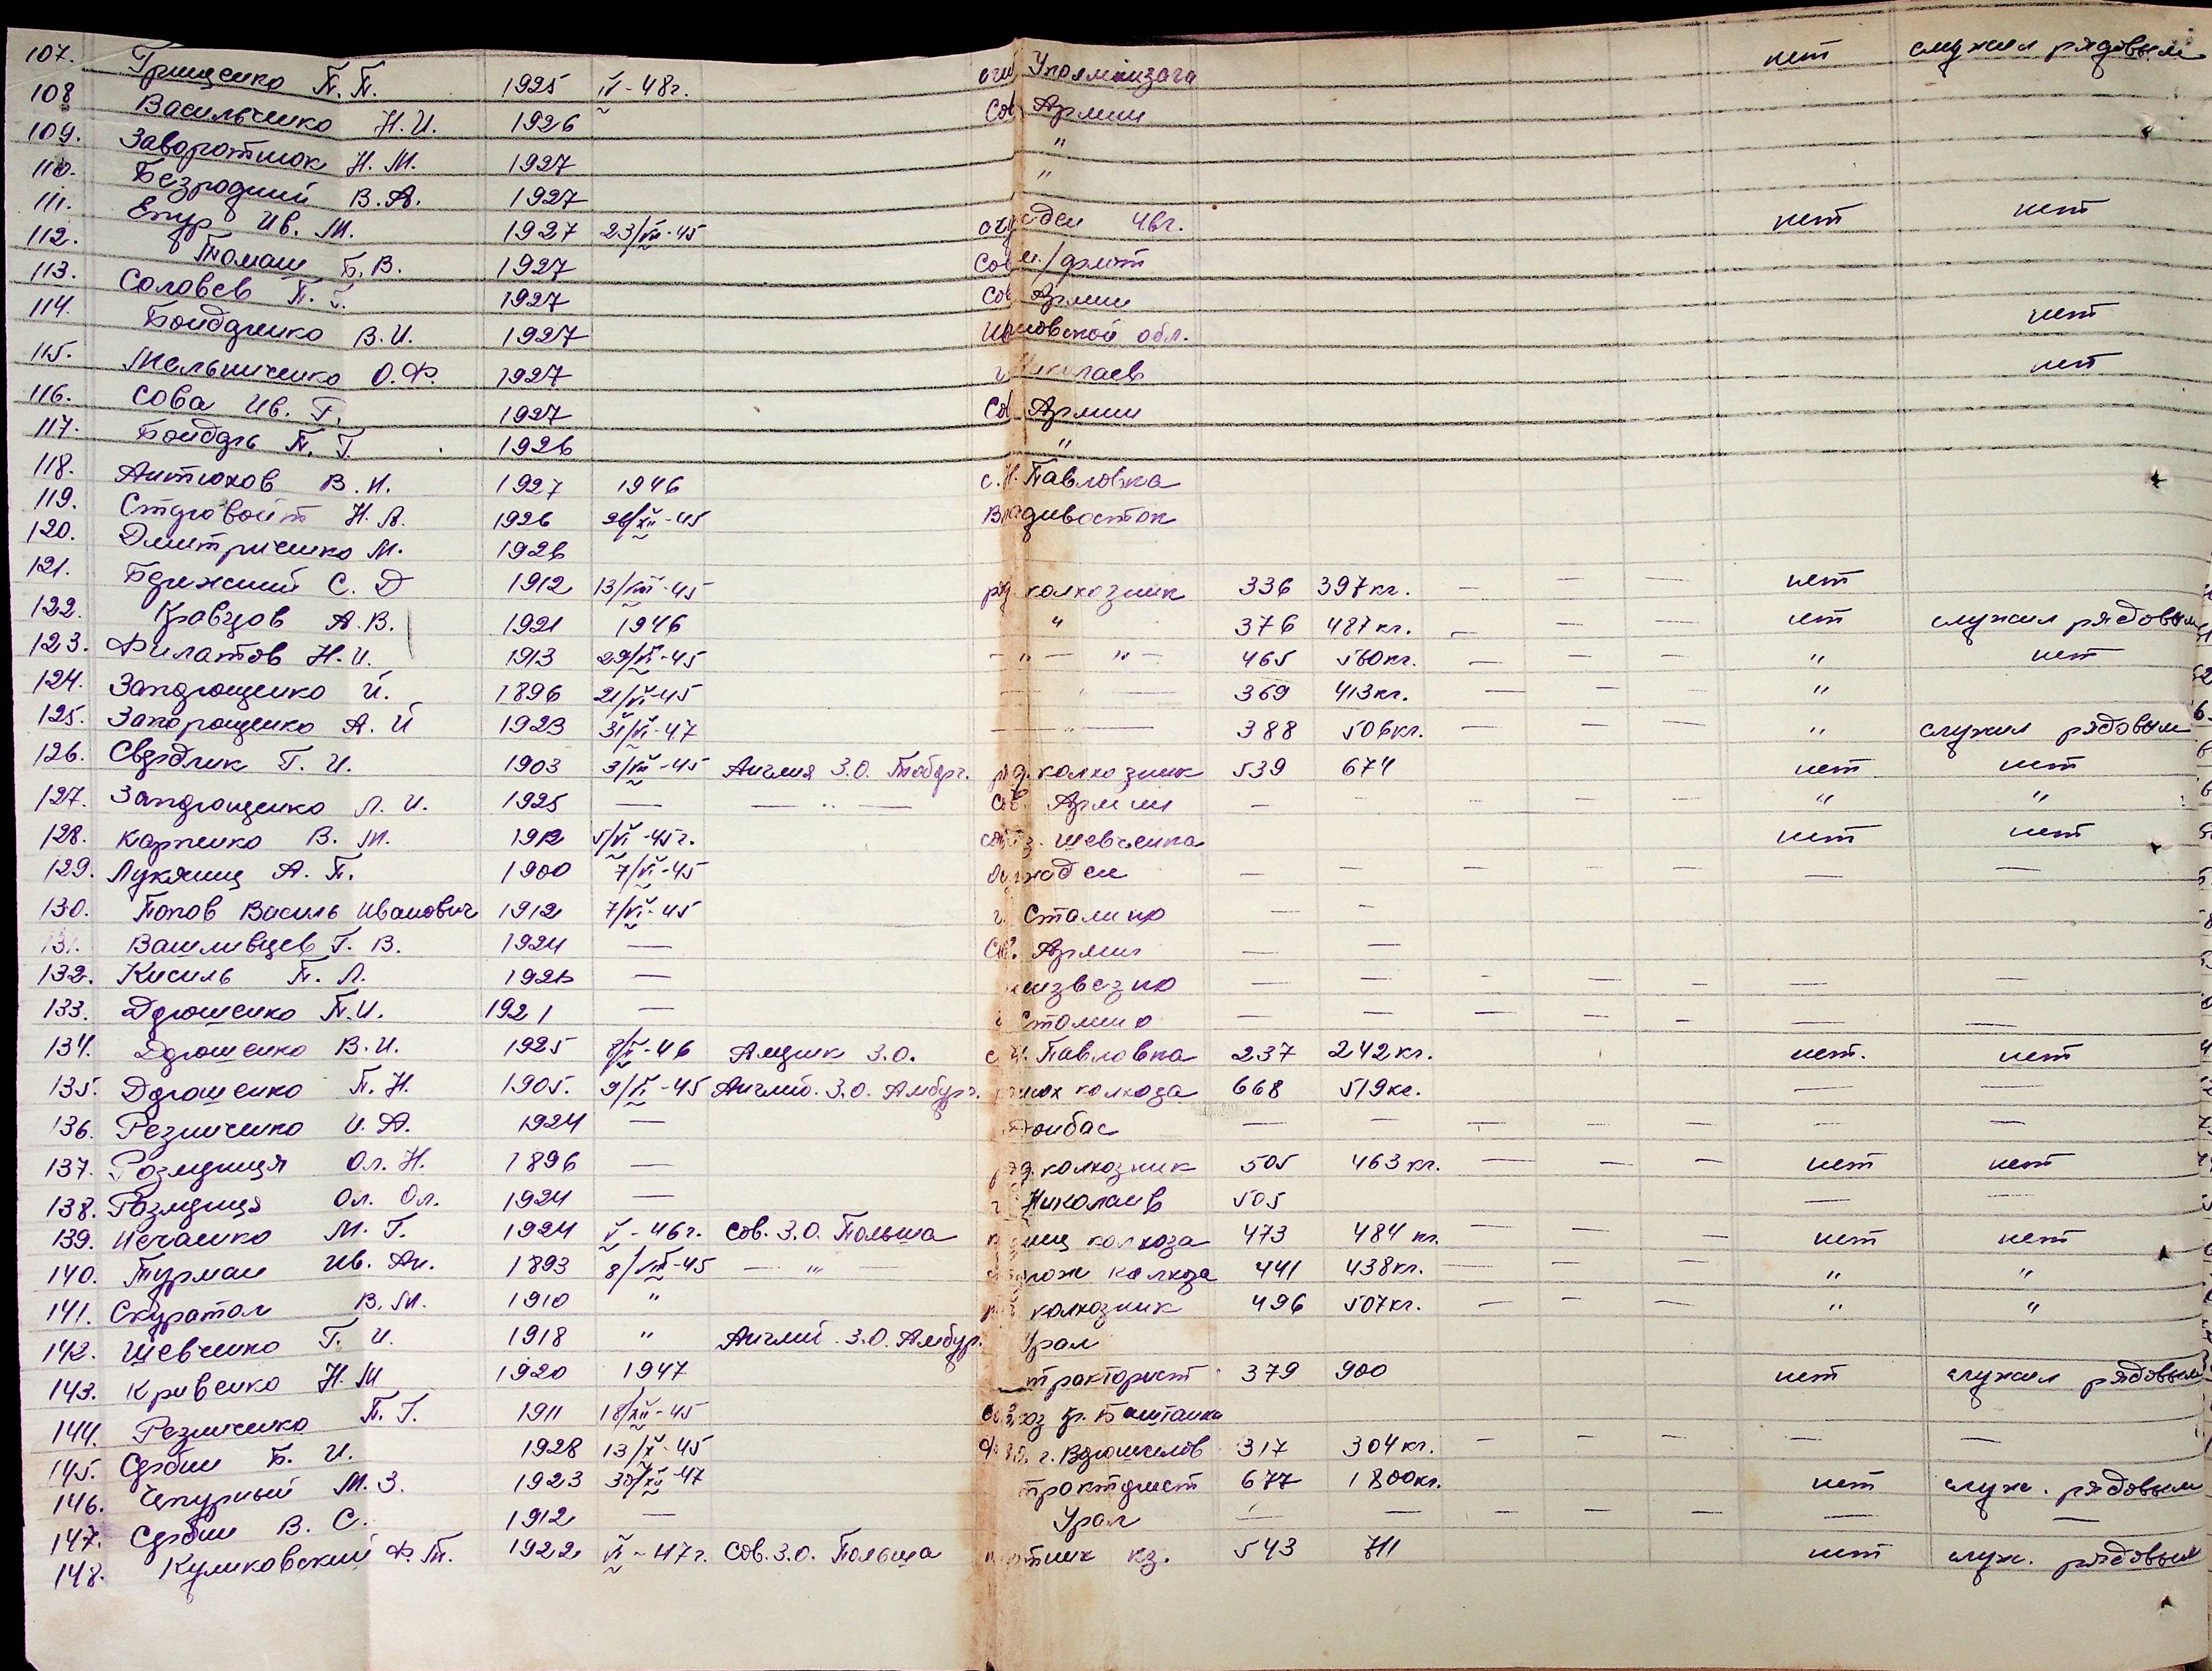 107. Грищенко П.П. 1925 IV-48г. нет служил рядовым
108 Васильченко Н.И. 1926 Сов Армии
109. Заворотнюк Н.М. 1927 "
110. Безродний В.А. 1927 "
111. Епур Ив. М. 1927 23/VIII-45 46г. нет нет
112. Томаш Б.В. 1927
113. Соловев П. 1927 Сов Армии
114. Бойдченко В.И. 1927 обл. нет
115. Мельниченко О.Ф. 1927 г Николаев нет
116. Сова Ив. Г. 1927 Сов Армии
117. П. Г. 1926 "
118. Антюхов В.И. 1927 1946 с. Н. Павловка
119. Стоговойт Н.А. 1926 26/XII-45 Владивосток
120. Дмитриченко М. 1926
121. С. Д 1912 13/VIII-45 ряд. колхозник 336 397кг. — — — нет
122. Кравцов А.В. 1921 1946 " 376 487кг. — — — нет служил рядовым
123. Филатов Н.И. 1913 29/VI-45 — " — " — 465 560кг. — — — " нет
124. Запорощенко И. 1896 21/VI-45 — " — 369 413кг. — — — "
125. Запорощенко А.И 1923 31/VI-47 — " — 388 506кг. — — — " служил рядовым
126. Свердлик Г.И. 1903 3/VIII-45 Англия З.О. ряд. колхозник 539 674 нет нет
127. Запорощенко Л.И. 1925 — — " — Сов. Армии — — — — — — " "
128. Карпенко В.М. 1912 5/VI-45г. Шевченка нет нет
129. Лукянец А.П. 1900 7/VI-45 — — — — — — —
130. Попов Василь Иванович 1912 7/VI-45 г. Сталино — —
131. Вашливцев Г.В. 1924 — Сов. Армии — —
132. Кисиль П.Л. — неизвезно — — — — — — —
133. Дорошенко П.И. 1921 — г Сталино — — — — — — —
134. Дорошенко В.И. 1925 8/X-46 З.О. с Н. Павловка 237 242кг. нет. нет
135. Дорошенко П.Н. 1905. 9/VI-45 Англио. З.О. Амбург. колхоза 668 519кг. — —
136. Резниченко И.А. 1924 — Донбас — — — — — — —
137. Розмариця Ол.Н. 1896 — ряд. колхозник 505 463кг. — — — нет нет
138. Розмариця Ол. Ол. 1924 — г Николаив 505 — —
139. Нечаенко М.Г. 1924 V-46г. Сов. З.О. Польша колхоза 473 484 кг. — — — нет нет
140. Турман Ив. Ан. 1893 8/VIII-45 — " — сторож колхоза 441 438кг. — — — " "
141. Скуратол В.М. 1910 " ряд колхозник 496 507кг. — — — " "
142. Шевченко Г.И. 1918 " Англий. З.О. Амбур. Урал
143. Кривенко Н.М 1920 1947 тракторист 379 900 нет служил рядовым
144. Резниченко П.Г. 1911 18/XII-45 Кр. Баштанка — —
145. Сербин Б.И. 1928 13/X-45 г. Ворошилов 317 304кг. — — — — —
146. Чепурный М.З. 1923 30/XII-47 тракторист 677 1800кг. нет служ. рядовым
147. Сербин В.С. 1912 — Урал — — — — — — —
148. Куликовский Ф.Т. 1922 VI-47г. Сов. З.О. Польша кз. 543 711 нет служ. рядовым